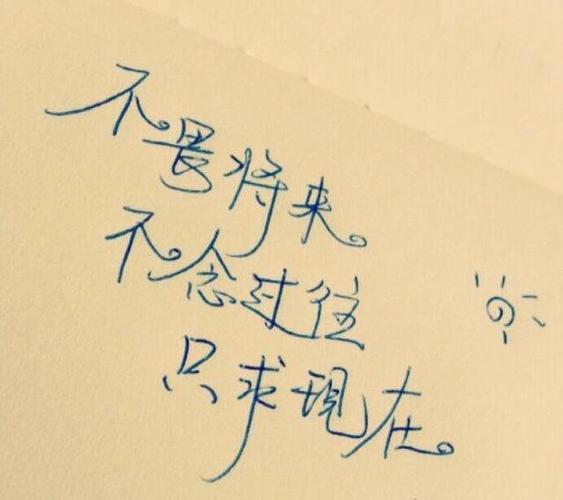 不畏将来。
不念过往
只求現在。